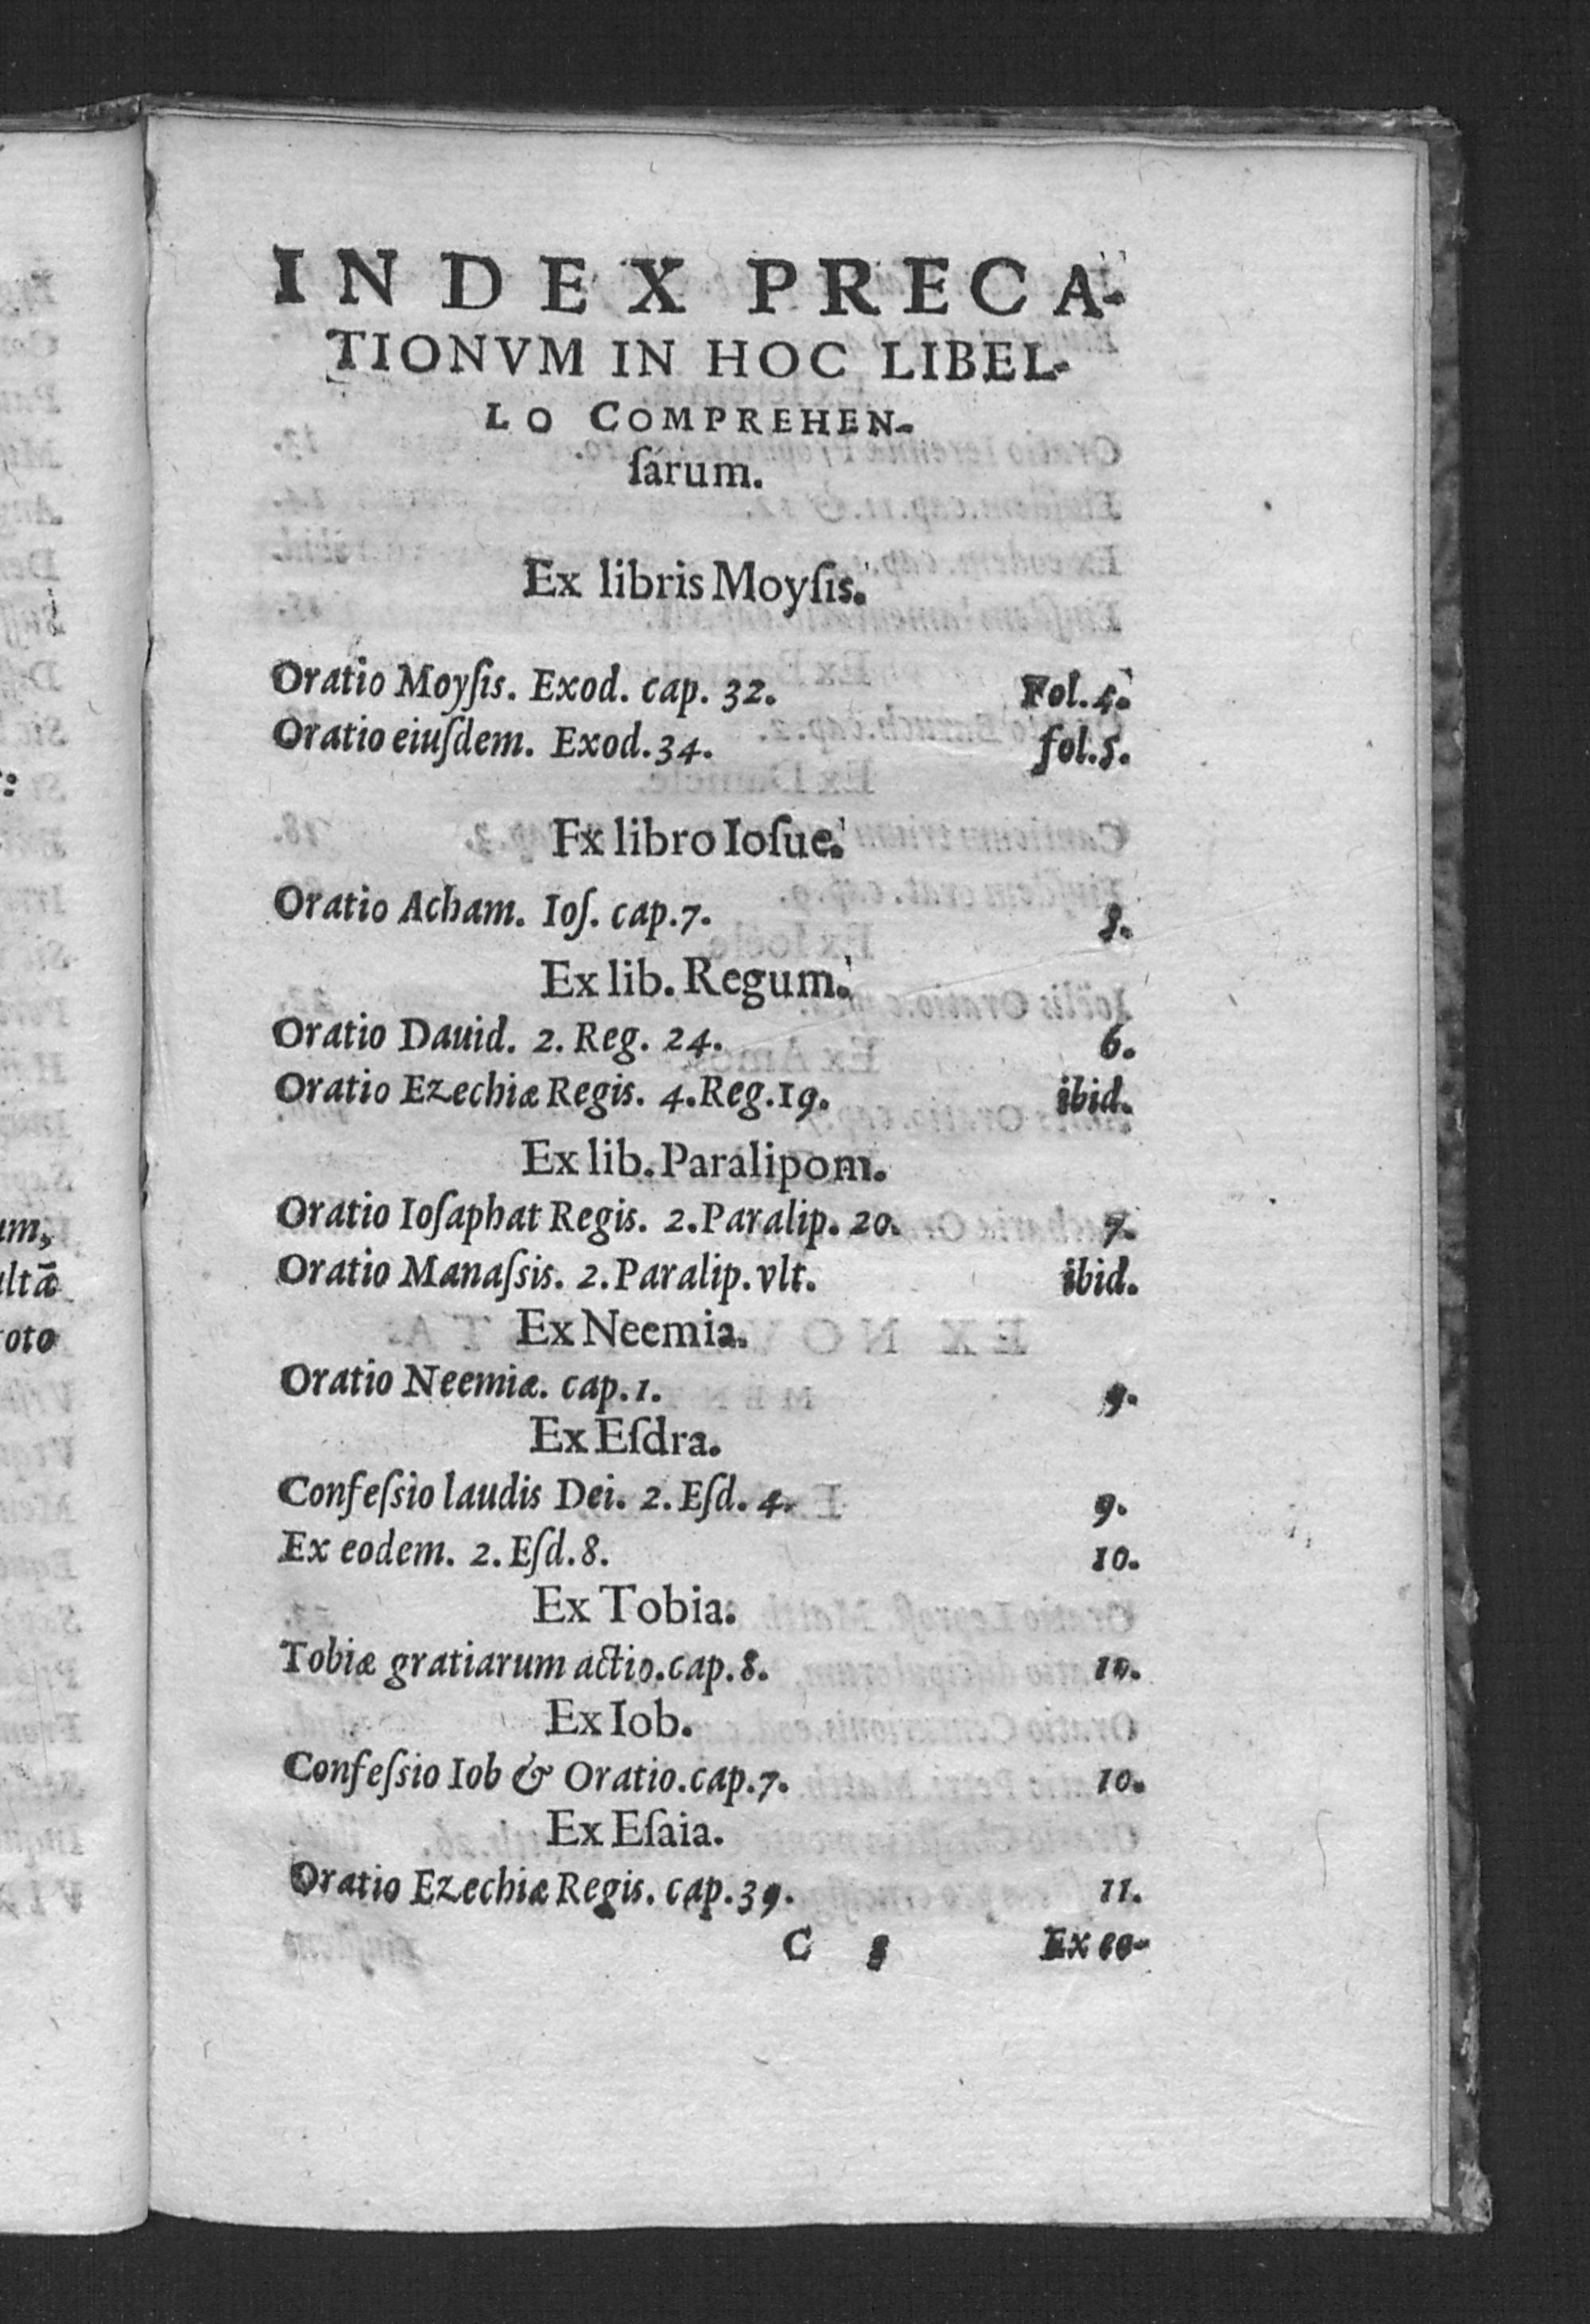 INDEX PRECA-
TIONVM IN HOC LIBEL-
LO COMPREHEN-
ſarum.
Ex libris Moyſis.
Oratio Moyſis. Exod. cap. 32. Fol.4.
Oratio eiuſdem. Exod.34. fol.5.
Fx libro Ioſue.
Oratio Acham. Ioſ. cap.7. 5.
Ex lib. Regum.
Oratio Dauid. 2. Reg. 24. 6.
Oratio Ezechiæ Regis. 4.Reg.19. ibid.
Ex lib. Paralipom.
Oratio Ioſaphat Regis. 2.Paralip. 20. 7.
Oratio Manaſsis. 2.Paralip.vlt. ibid.
Ex Neemia.
Oratio Neemiæ. cap.1. 9.
Ex Eſdra.
Confeſsio laudis Dei. 2. Eſd. 4. 9.
Ex eodem. 2. Eſd.8. 10.
Ex Tobia.
Tobiæ gratiarum actio.cap.8. 10.
Ex Iob.
Confeſsio Iob & Oratio.cap.7. 10.
Ex Eſaia.
Oratio Ezechiæ Regis. cap.39. 11.
C Ex eo-